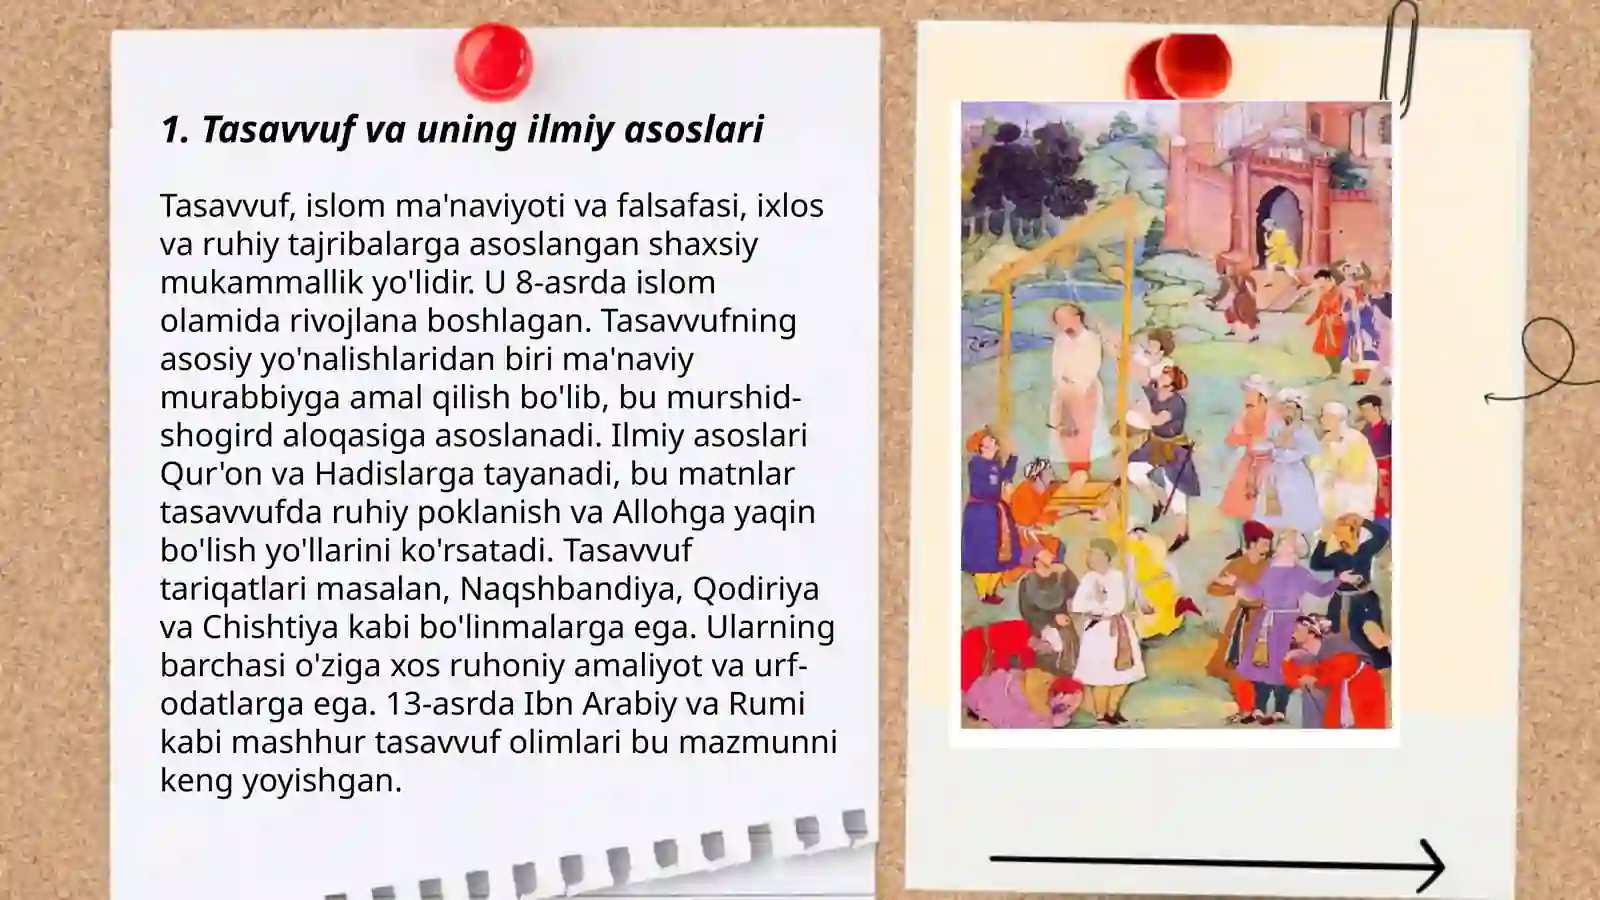 1. Tasavvuf va uning ilmiy asoslari
Tasavvuf, islom ma'naviyoti va falsafasi, ixlos
va ruhiy tajribalarga asoslangan shaxsiy
mukammallik yo'lidir. U 8-asrda islom
olamida rivojlana boshlagan. Tasavvufning
asosiy yo'nalishlaridan biri ma'naviy
murabbiyga amal qilish bo'lib, bu murshid-
shogird aloqasiga asoslanadi. Ilmiy asoslari
Qur'on va Hadislarga tayanadi, bu matnlar
tasavvufda ruhiy poklanish va Allohga yaqin
bo'lish yo'llarini ko'rsatadi. Tasavvuf
tariqatlari masalan, Naqshbandiya, Qodiriya
va Chishtiya kabi bo'linmalarga ega. Ularning
barchasi o'ziga xos ruhoniy amaliyot va urf-
odatlarga ega. 13-asrda Ibn Arabiy va Rumi
kabi mashhur tasavvuf olimlari bu mazmunni
keng yoyishgan.